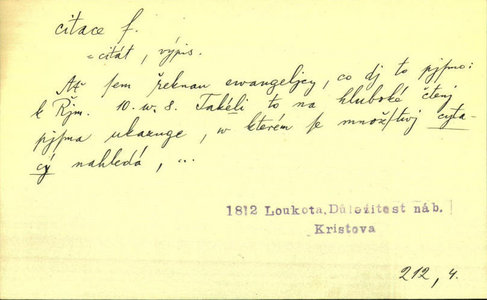 citace f.
= citát, výpis.
Ať sem řeknau ewangeljcy, co dj to pjsmo:
k Řjm. 10. w. 8. Takéli to na hluboké čtený
pjsma ukazuge, w kterém se množstwj cyta-
cý nahledá, ...
1812 Loukota, Důležitost náb.
Kristova
212, 4.